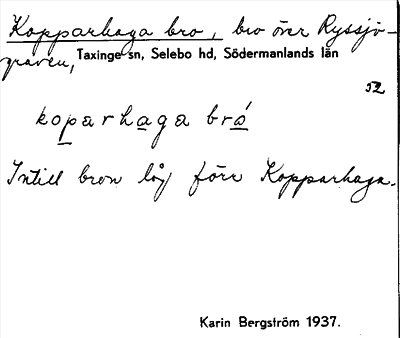 Kopparhaga bro, bro över Ryssjö-
graven, Taxinge sn, Selebo hd, Södermanlands län
52
koparhaga bró
Intill bron låg förr Kopparhaga.
Karin Bergström 1937.